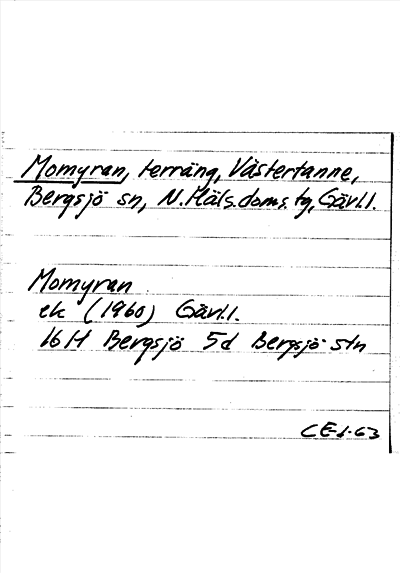 Momyran, terräng, Västertanne,
Bergsjö sn, N.Häls.doms.tg, Gävl.l.
Momyran
ek (1960) Gävl.l.
16H Bergsjö 5d Bergsjö stn
CE-1-63